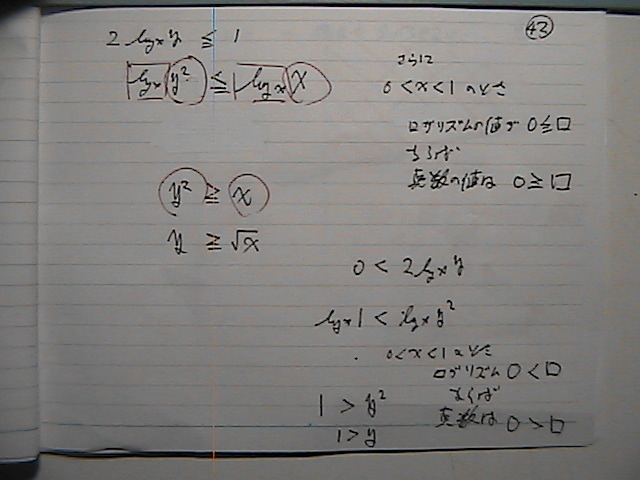 43
2 log_x y ≦ 1
log_x y² ≦ log_x x
さらに
0 < x < 1 のとき
ロガリズムの値が ○≦□
ならば
真数の値は ○≧□
y² ≧ x
y ≧ √x
0 < 2 log_x y
log_x 1 < log_x y²
0 < x < 1 のとき
ロガリズム ○<□
ならば
真数は ○>□
1 > y²
1 > y